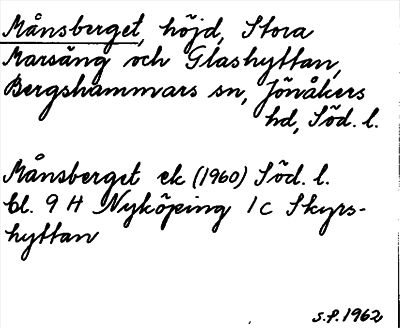 Månsberget, höjd, Stora
Marsäng och Glashyttan,
Bergshammars sn, Jönåkers
hd, Söd. l.
Månsberget ek (1960) Söd. l.
bl. 9 H Nyköping 1 c Skyrs-
hyttan
S.F. 1962